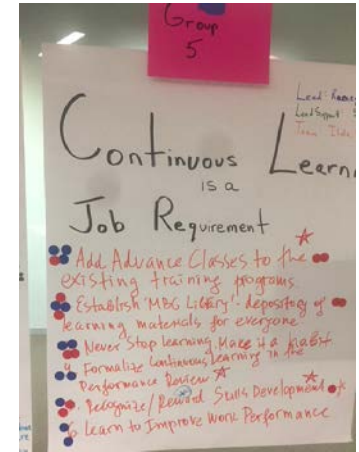 Group
5
Lead:
Lead Support:
Team
Continuous Learn
is a
Job Requirement
Add Advance Classes to the
existing training programs.
Establish 'MBG Library' - depository of
learning materials for everyone
Never Stop Learning. Make it a habit
4 Formalize Continuous Learning in the
Performance Review
5. Recognize/Reward Skills Development
6 Learn to Improve Work Performance